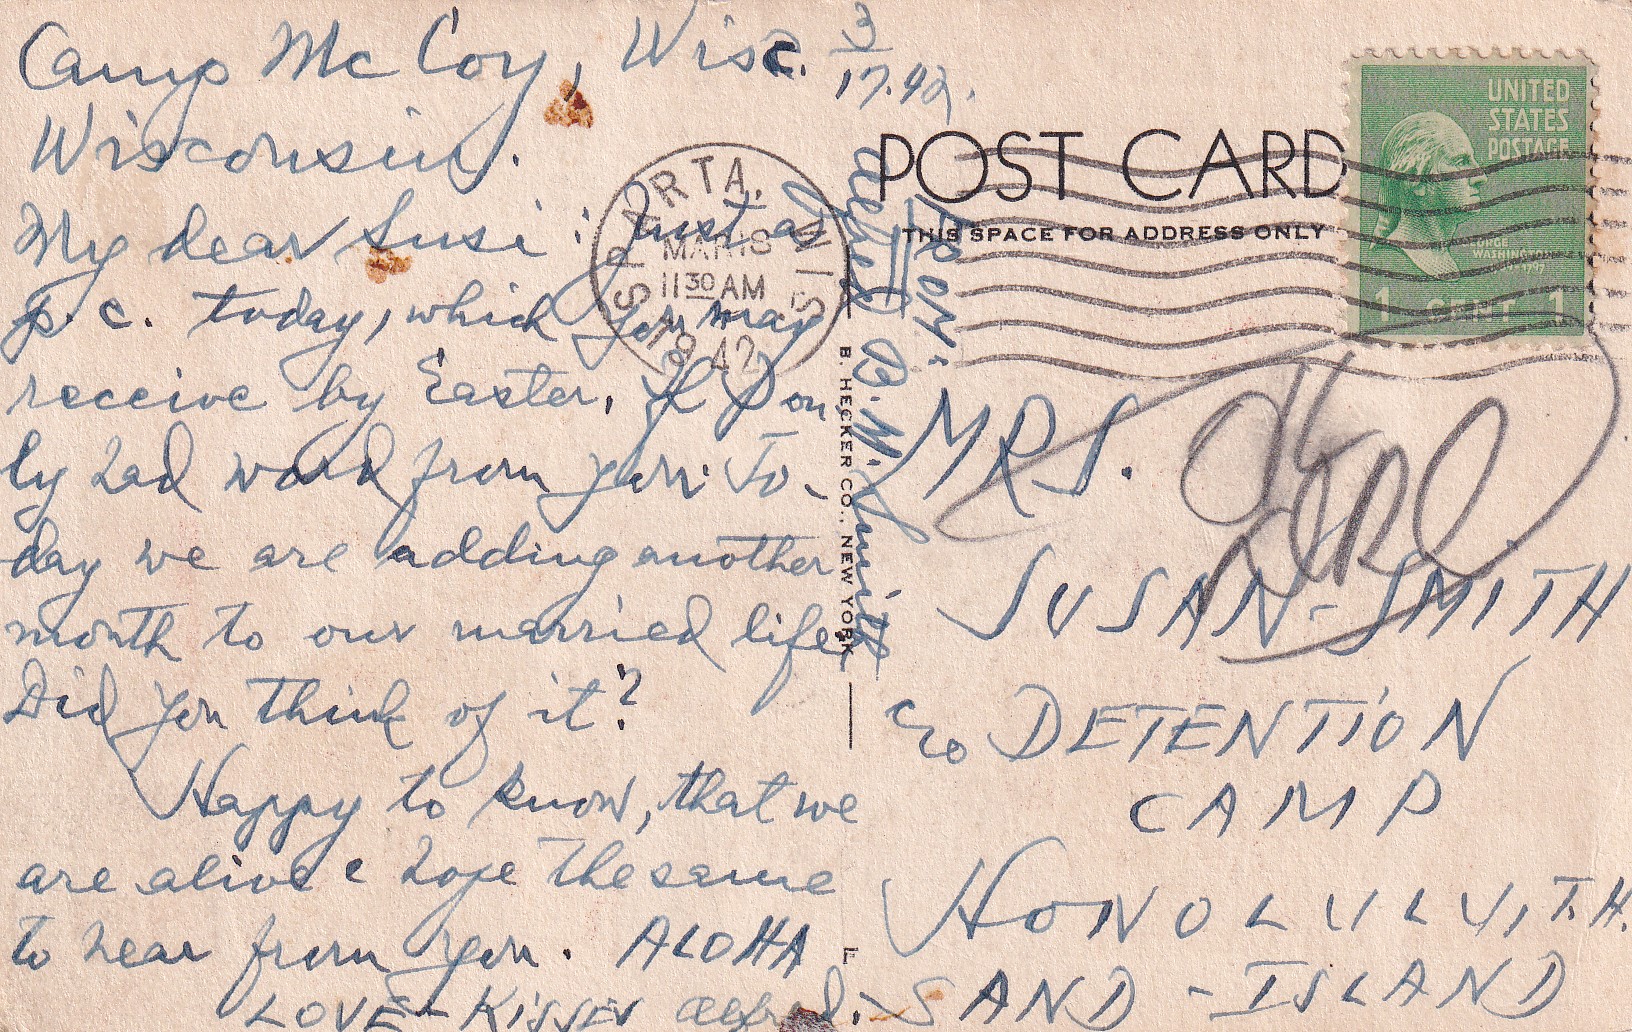 Camp McCoy, Wisc. 3/17.42.
Wisconsin.
My dear Susi: Just a
p. c. today, which you may
receive by Easter, If I on
ly had word from you. To-
day we are adding another
month to our married life.
Did you think of it?
Happy to know, that we
are alive & hope the same
to hear from you. ALOHA
LOVE - KISSES Alfred.
SPARTA, WIS.
MAR 18
11 30 AM
1942
POST CARD
THIS SPACE FOR ADDRESS ONLY
UNITED
STATES
POSTAGE
GEORGE
WASHINGTON
1 CENT 1
FROM:
Alfred B. M. Smith
B. HECKER CO., NEW YORK
MRS.
SUSAN - SMITH
c/o DETENTION
CAMP
HONOLULU, T. H.
SAND - ISLAND
OK